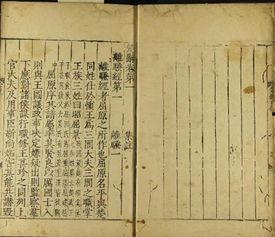 楚辭卷第一
集註
離騷經第一　離騷一
離騷經者屈原之所作也屈原名平與楚
同姓仕於懷王為三閭大夫三閭之職掌
王族三姓曰昭屈景
屈原序其譜屬率其賢良以厲國士入
則與王圖議政事決定嫌疑出則監察羣
下應對諸侯謀行職修王甚珍之同列上
官大夫及用事臣靳尚妒害其能共譖毀